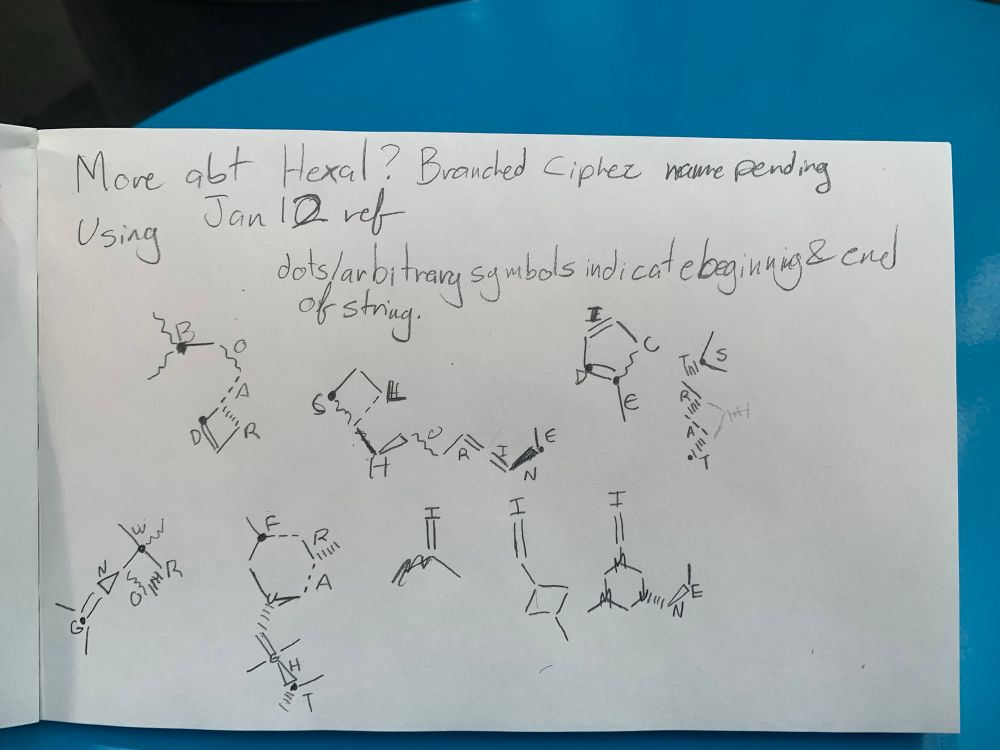 More abt Hexal? Branched Cipher name pending
Using Jan 12 ref
dots/arbitrary symbols indicate beginning & end
of string.
B O A R D
S H O R I N E
D I C E
T S R A T
W R O N G
F R A G H T
I
I
I N E